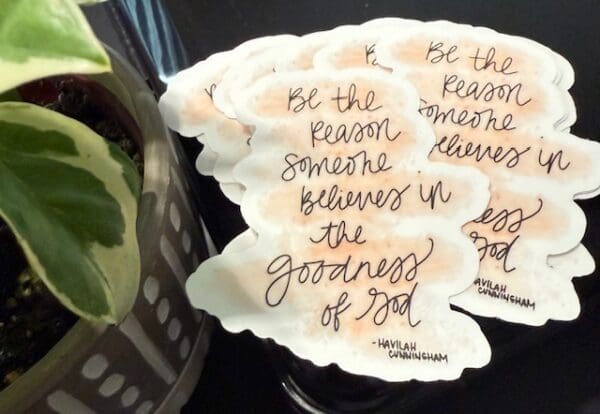 Be the
Reason
Someone
Believes in
the
goodness
of God
-HAVILAH
CUNNINGHAM
Be the
Reason
omeone
elieves in
ess
God
AVILAH
CUNNINGHAM